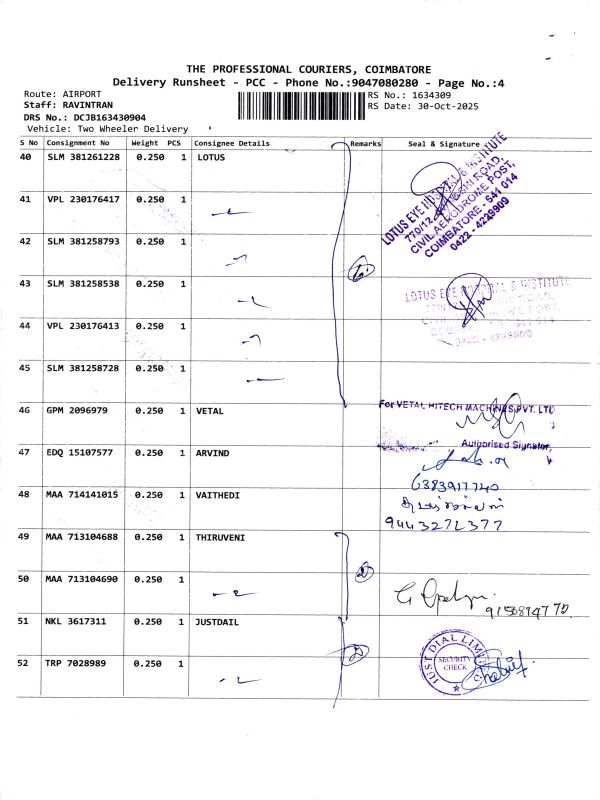 THE PROFESSIONAL COURIERS, COIMBATORE
Delivery Runsheet - PCC - Phone No.:9047080280 - Page No.:4
Route: AIRPORT
RS No.: 1634309
Staff: RAVINTRAN
RS Date: 30-Oct-2025
DRS No.: DCJB163430904
Vehicle: Two Wheeler Delivery
S No Consignment No Weight PCS Consignee Details Remarks Seal & Signature
40 SLM 381261228 0.250 1 LOTUS
LOTUS EYE HOSPITAL & INSTITUTE
770/12, ROAD,
CIVIL AERODROME POST,
COIMBATORE - 641 014
0422 - 4229909
41 VPL 230176417 0.250 1
42 SLM 381258793 0.250 1
43 SLM 381258538 0.250 1
LOTUS EYE HOSPITAL & INSTITUTE
44 VPL 230176413 0.250 1
0422 - 4229909
45 SLM 381258728 0.250 1
46 GPM 2096979 0.250 1 VETAL
For VETAL HITECH MACHINES PVT. LTD
Authorised Signatory
47 EDQ 15107577 0.250 1 ARVIND
6383917740
48 MAA 714141015 0.250 1 VAITHEDI
9443272377
49 MAA 713104688 0.250 1 THIRUVENI
50 MAA 713104690 0.250 1
51 NKL 3617311 0.250 1 JUSTDAIL
52 TRP 7028989 0.250 1
JUST DIAL LIMITED
SECURITY
CHECK